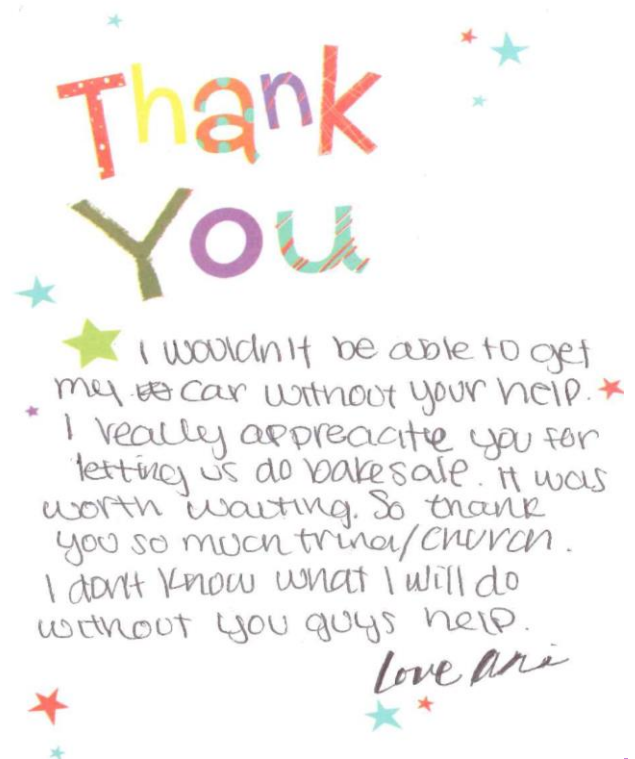 Thank
You
I wouldn't be able to get
my car without your help.
I really appreacitte you for
letting us do bakesale. It was
worth waiting. So thank
you so much trina/church.
I don't know what I will do
without you guys help.
Love Ari